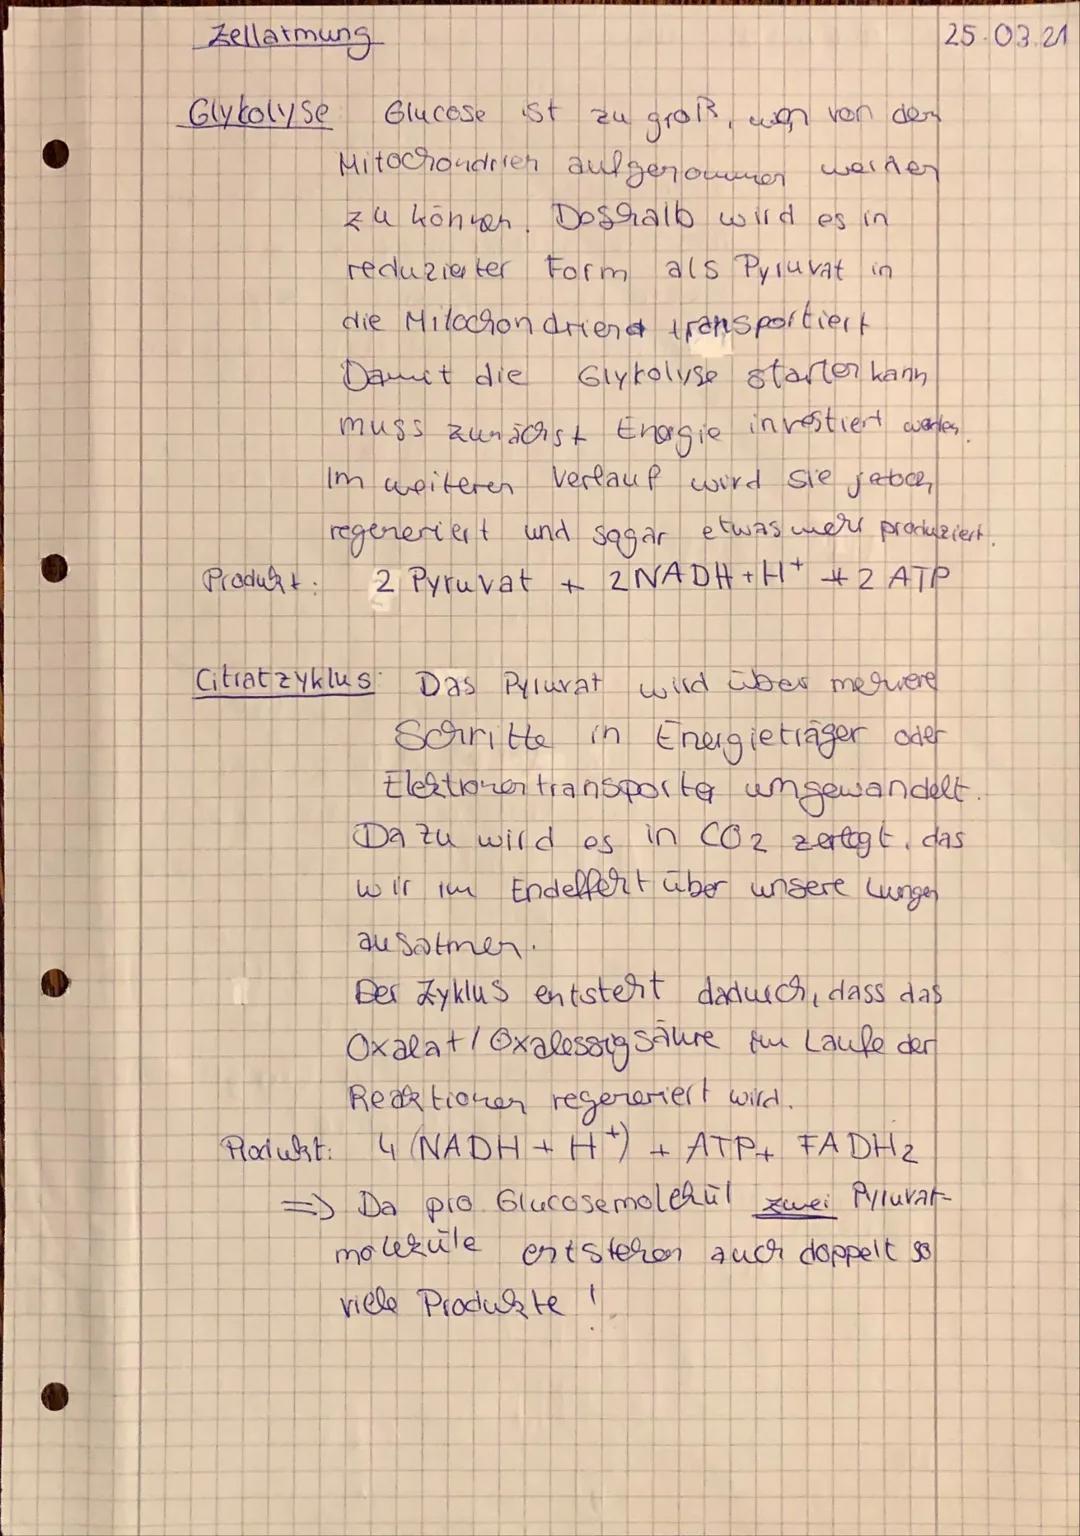 Zellatmung 25.03.21
Glykolyse Glucose ist zu groß, um von den
Mitochondrien aufgenommen werden
zu können. Deshalb wird es in
reduzierter Form als Pyruvat in
die Mitochondrien transportiert
Damit die Glykolyse starten kann
muss zunächst Energie investiert werden.
Im weiteren Verlauf wird sie jedoch
regeneriert und sogar etwas mehr produziert.
Produkt: 2 Pyruvat + 2 NADH + H⁺ + 2 ATP
Citratzyklus: Das Pyruvat wird über mehrere
Schritte in Energieträger oder
Elektronentransporter umgewandelt.
Dazu wird es in CO2 zerlegt, das
wir im Endeffekt über unsere Lungen
ausatmen.
Der Zyklus entsteht dadurch, dass das
Oxalat/Oxalessigsäure im Laufe der
Reaktionen regeneriert wird.
Produkt: 4 (NADH + H⁺) + ATP + FADH2
=> Da pro Glucosemolekül zwei Pyruvat-
moleküle entstehen auch doppelt so
viele Produkte !